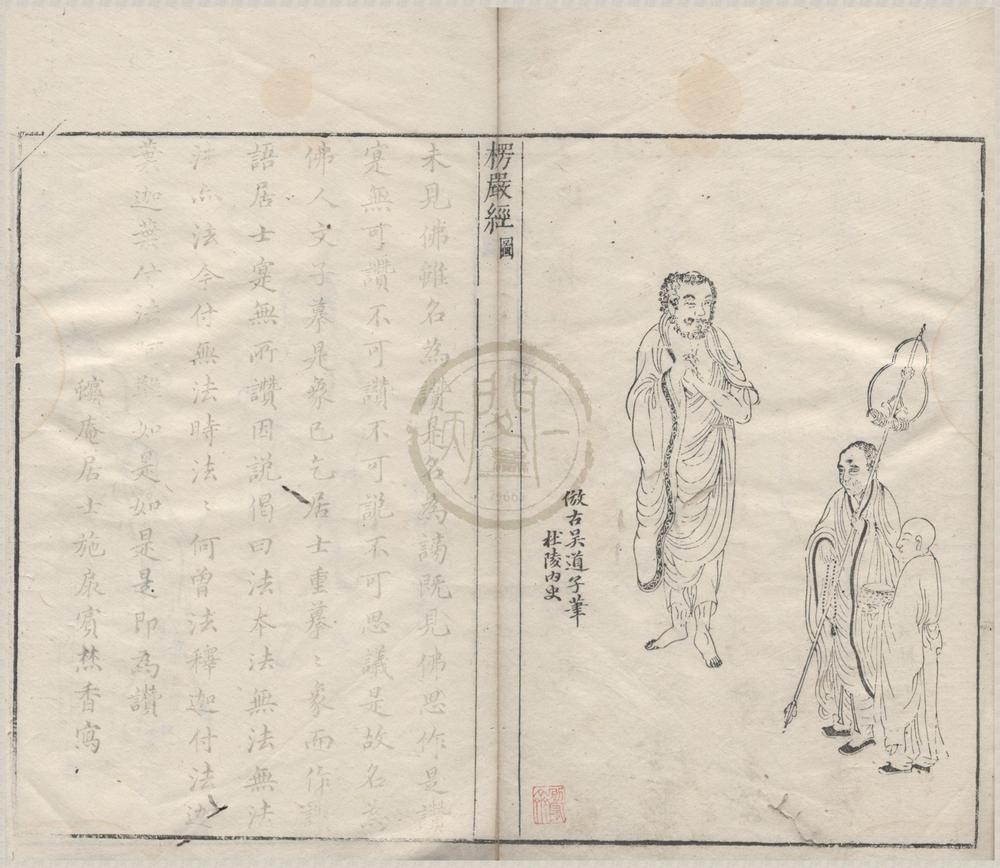 倣古吴道子筆
杜陵内史
楞嚴經
圖
未見佛雖名為讚是名為謗既見佛思作是讚
寔無可讚不可讚不可說不可思議是故名為
佛人文子摹是象已乞居士重摹〻象而作
語居士寔無所讚因說偈曰法本法無法無法
法亦法今付無法時法〻何曾法釋迦付法迦
葉迦葉付法 如是如是是即為讚
庵居士施扆賓焚香寫